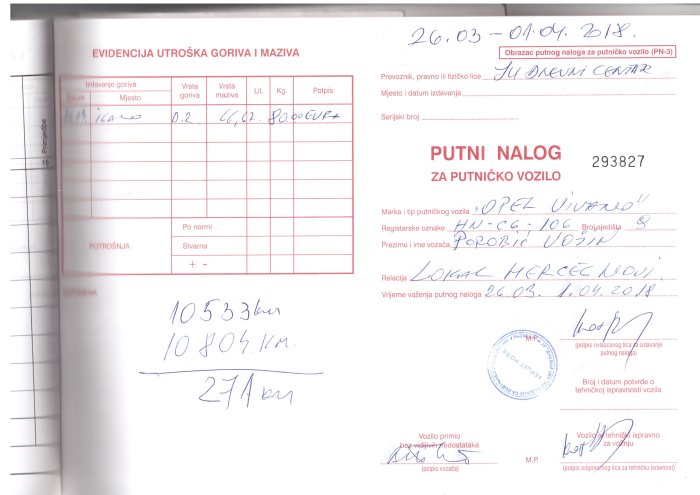 EVIDENCIJA UTROŠKA GORIVA I MAZIVA
Izdavanje goriva
Datum
Mjesto
Vrsta goriva
Vrsta maziva
Lit.
Kg.
Potpis
D.2. 44,62 80,00 EURA
POTROŠNJA
Po normi
Stvarna
+ -
10533 km
10804 KM.
271 km
Primjedba
26.03 - 01.04.2018.
Obrazac putnog naloga za putničko vozilo (PN-3)
Prevoznik, pravno ili fizičko lice JU DNEVNI CENTAR
Mjesto i datum izdavanja
Serijski broj
PUTNI NALOG
ZA PUTNIČKO VOZILO
293827
Marka i tip putničkog vozila "OPEL VIVARO"
Registarske oznake HN-CG-106 Broj sjedišta 9
Prezime i ime vozača POROBIĆ
Relacija LOKAL HERCEG NOVI.
Vrijeme važenja putnog naloga 26.03. 1.04.2018
M.P.
(potpis ovlašćenog lica za izdavanje
putnog naloga)
Broj i datum potvrde o
tehničkoj ispravnosti vozila
Vozilo primio
bez vidljivih nedostataka
(potpis vozača)
M.P.
Vozilo je tehnički ispravno
za vožnju
(potpis odgovornog lica za tehničku ispravnost)